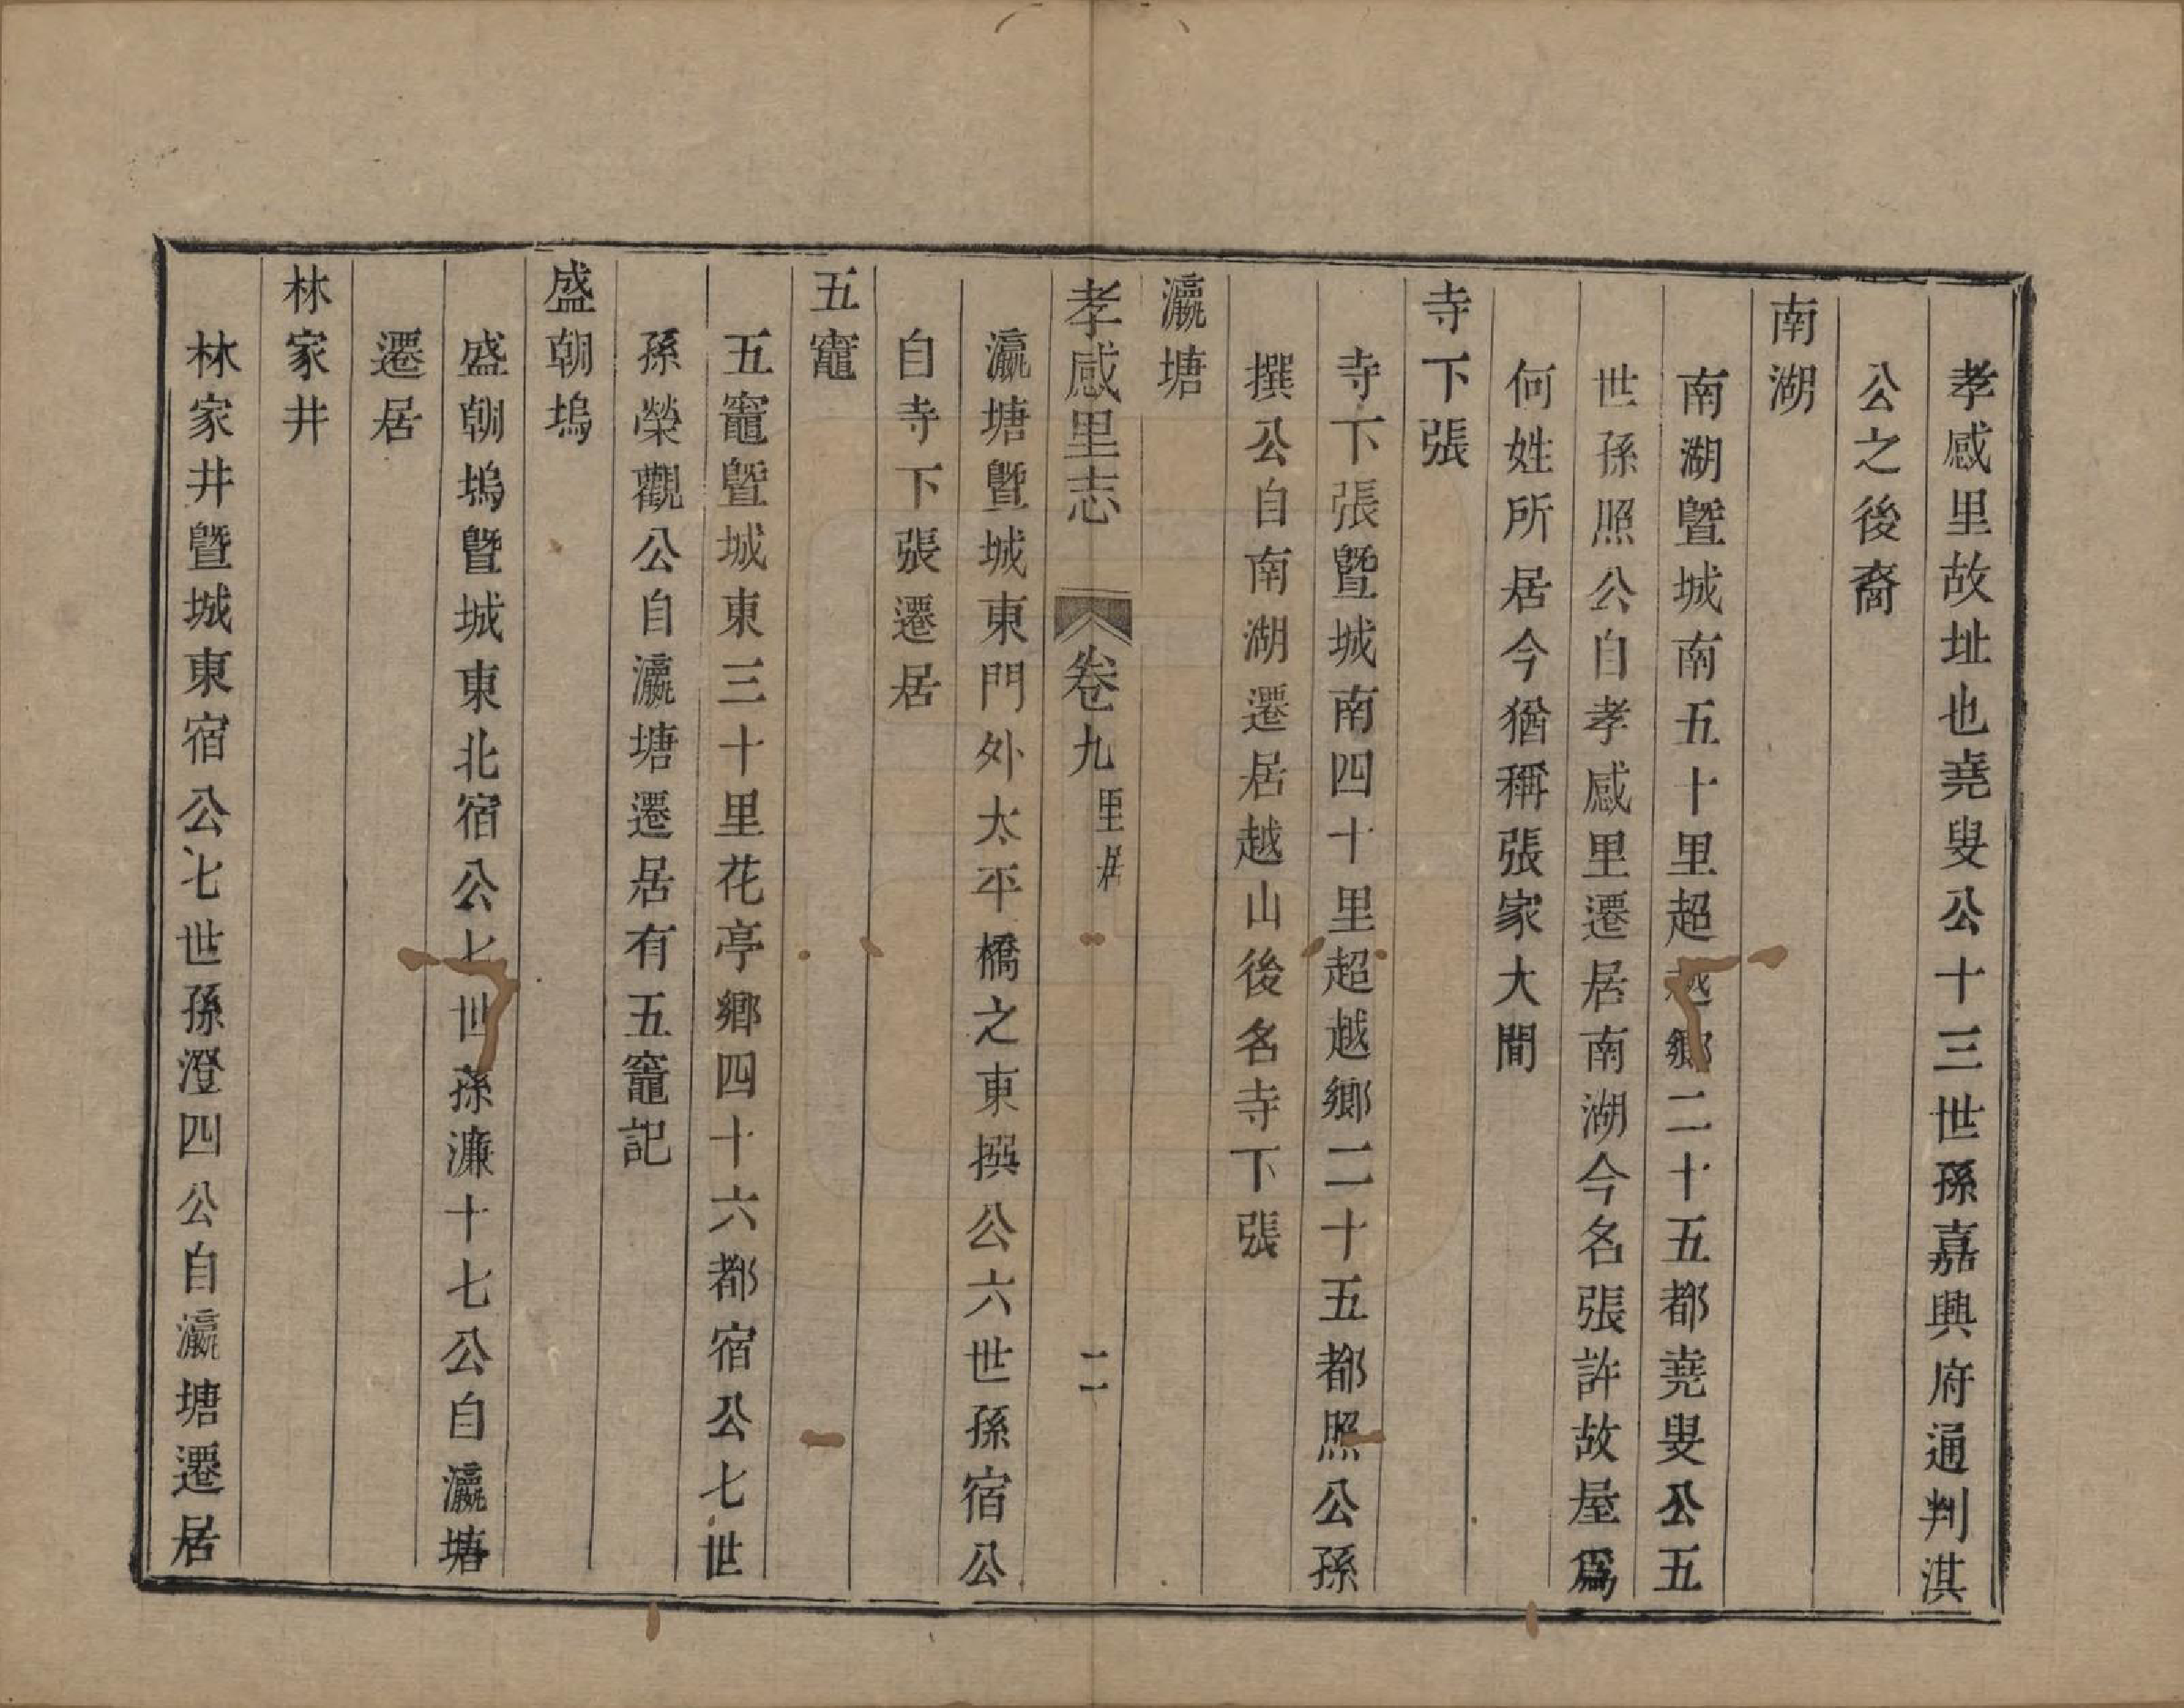 孝感里故址也堯叟公十三世孫嘉興府通判淇
公之後裔
南湖
南湖曁城南五十里超越鄉二十五都堯叟公五
世孫照公自孝感里遷居南湖今名張許故屋爲
何姓所居今猶稱張家大間
寺下張
寺下張曁城南四十里超越鄉二十五都照公孫
撰公自南湖遷居越山後名寺下張
瀛塘
孝感里志 卷九 里居 二
瀛塘曁城東門外太平橋之東撰公六世孫宿公
自寺下張遷居
五竈
五竈曁城東三十里花亭鄉四十六都宿公七世
孫榮觀公自瀛塘遷居有五竈記
盛朝塢
盛朝塢曁城東北宿公七世孫濂十七公自瀛塘
遷居
林家井
林家井曁城東宿公七世孫澄四公自瀛塘遷居